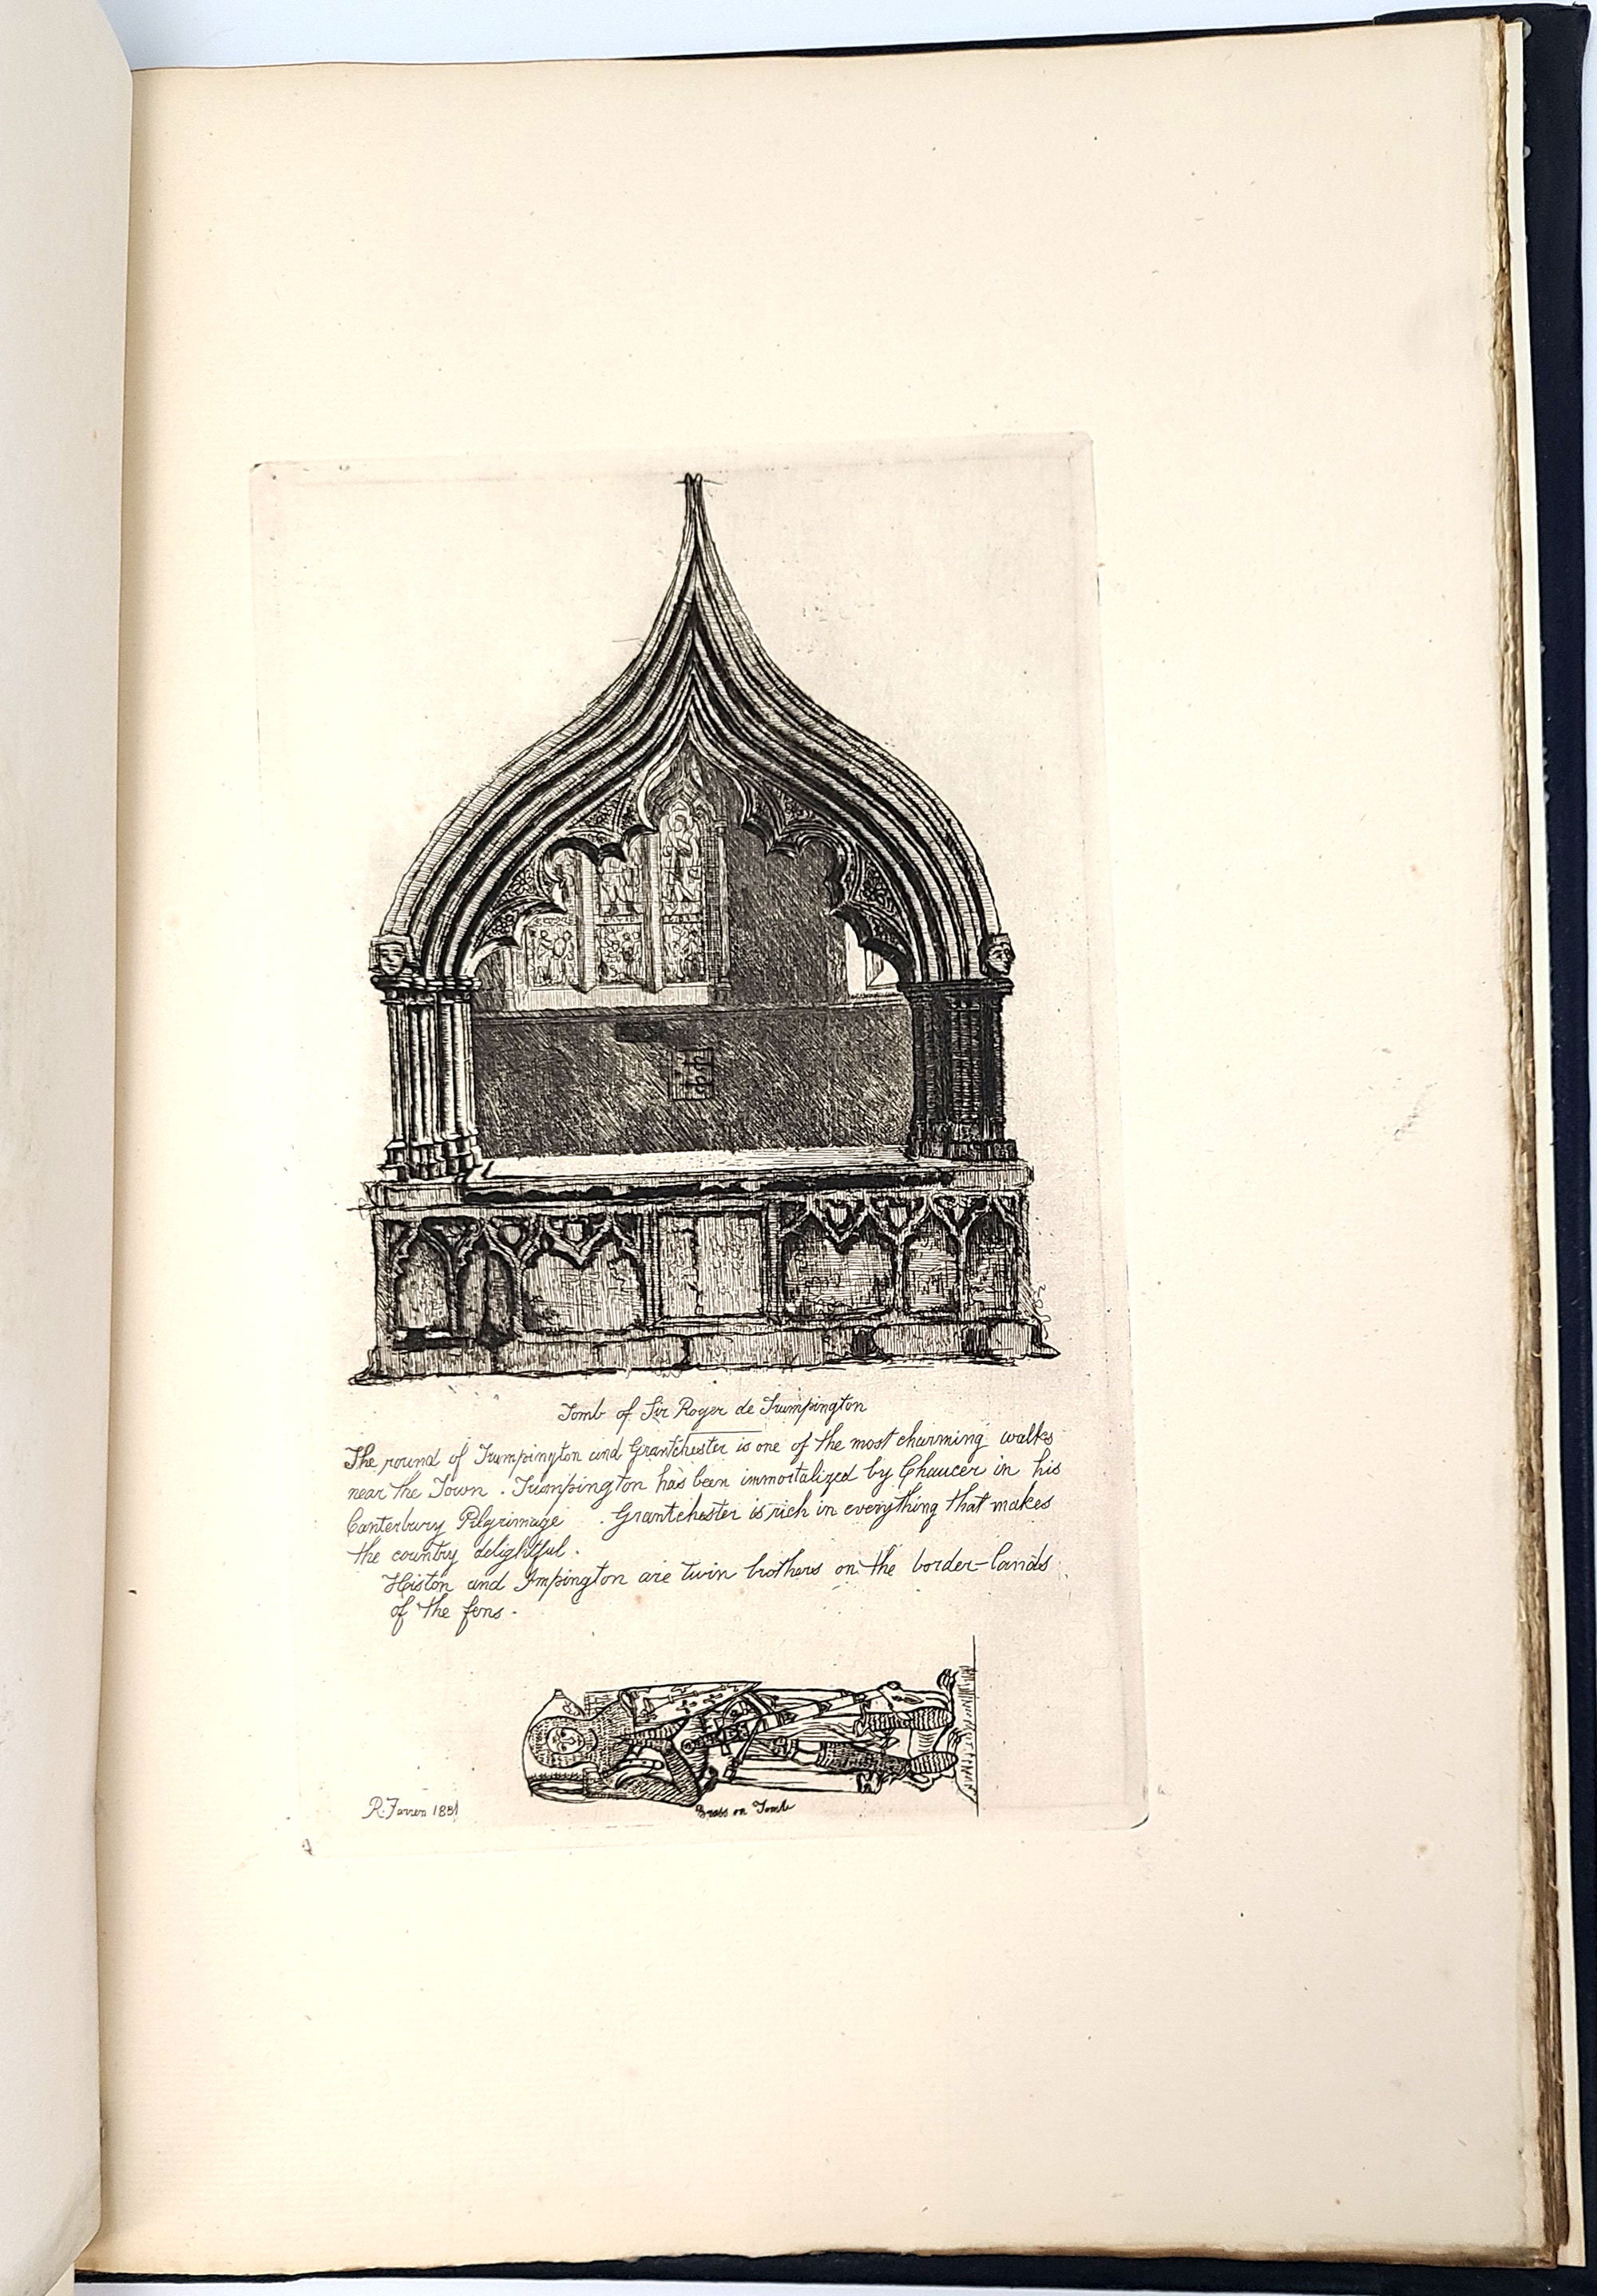 Tomb of Sir Roger de Trumpington
The round of Trumpington and Grantchester is one of the most charming walks
near the Town. Trumpington has been immortalized by Chaucer in his
Canterbury Pilgrimage. Grantchester is rich in everything that makes
the country delightful.
Histon and Impington are twin brothers on the border-lands
of the fens.
R. Farren 1881
Brass on Tomb